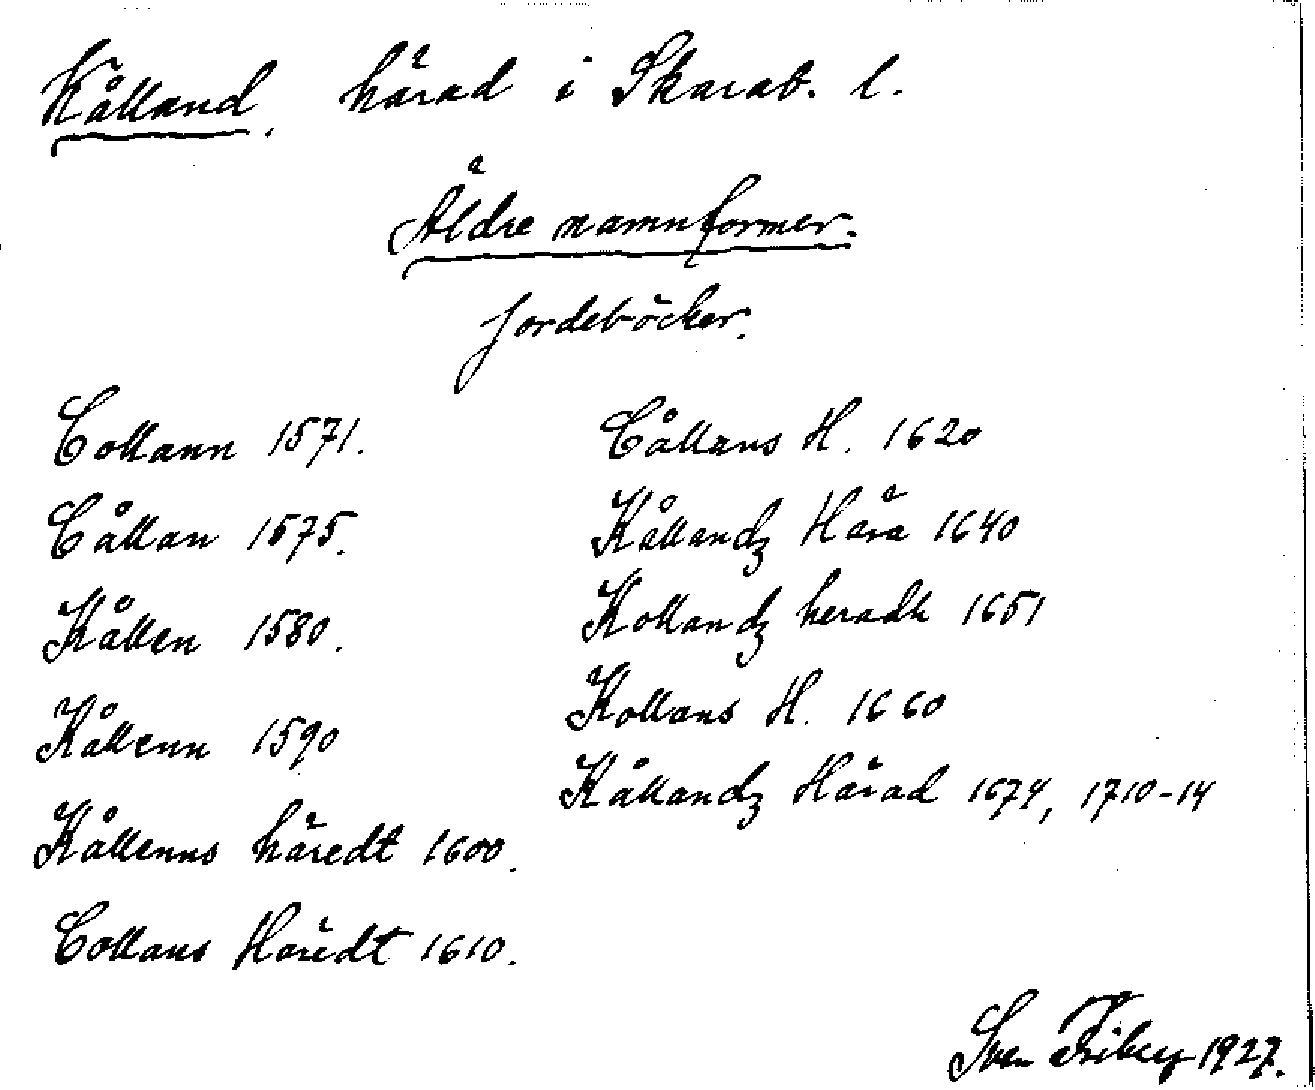 Kålland, härad i Skarab. l.
Äldre namnformer.
Jordeböcker.
Collann 1571.
Cållan 1575.
Kållen 1580.
Kållenn 1590
Kållenns häredt 1600.
Collans Häredt 1610.
Cållans H. 1620
Kållandz Hära 1640
Kollandz heradh 1651
Kollans H. 1660
Kållandz Härad 1674, 1710-14
Sven Friberg 1927.